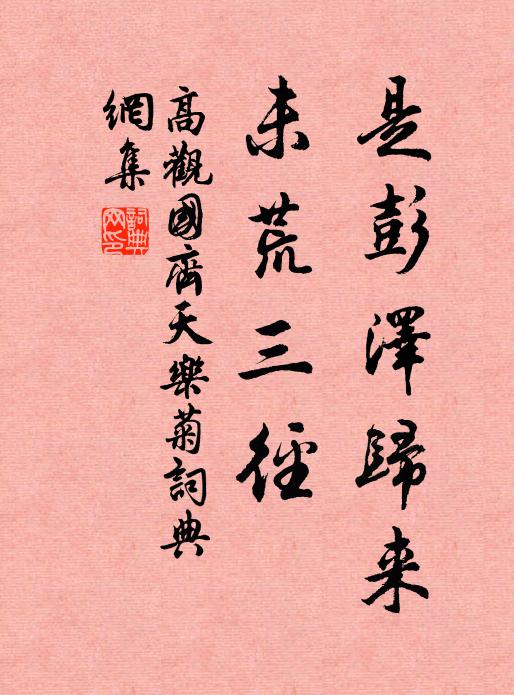 是彭澤歸来
未荒三徑
高觀國齊天樂菊詞典
網集
詞典網印